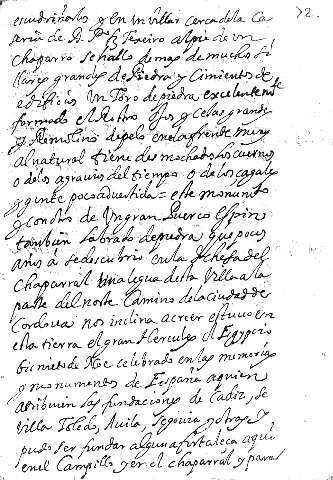 72.
escudriñarlos y en un villar cerca de la Ca
seria de D. P.º Texeiro al pie de un
chaparro se hallo demas de muchos si
llares grandes de Piedra y Cimientos de
edificios Un Toro de piedra excelentem.te
formado el Rostro ojos y Celas grande
y Remolino de pelo en la frente muy
al natural tiene desmochados los cuernos
o de los agravios del tiempo o de los zagales
y gente poco advertida = este monum.to
y con otro de Un gran Puerco Espin
tambien labrado de piedra que pocos
años á se descubrio en la dehesa del
chaparral Una legua desta Villa a la
parte del norte Camino de la ciudad de
Cordova nos inclina a creer estuvo en
esta tierra el gran Hercules el Egypcio
bisnieto de Noe celebrado en las memorias
y monumentos de España a quien
atribuien las fundaciones de Cadiz, Se
villa Toledo, Avila, Segovia y otras y
pudo ser fundar alguna fortaleça aqui
en el Campillo y en el chaparral y para